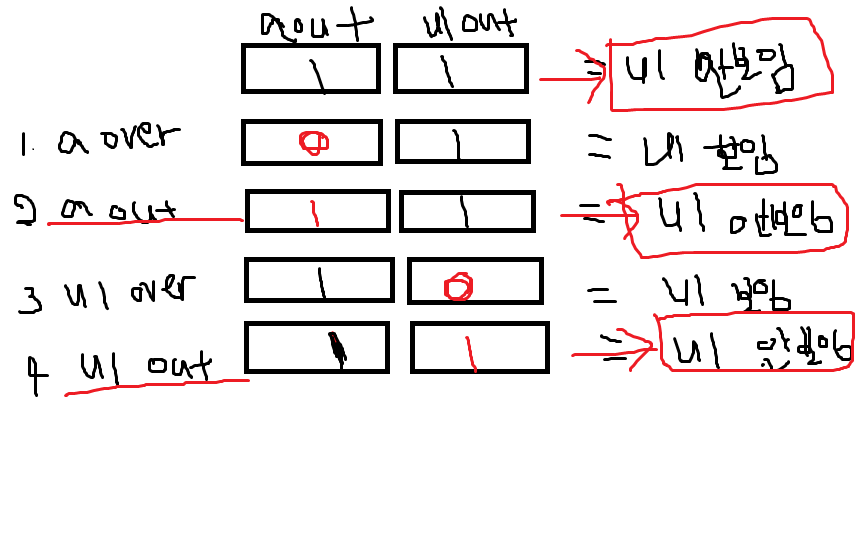 aout ulout
1 1 = ul 안보임
1. a over 0 1 = ul 보임
2 a out 1 1 = ul 안보임
3 ul over 1 0 = ul 보임
4 ul out 1 1 = ul 안보임